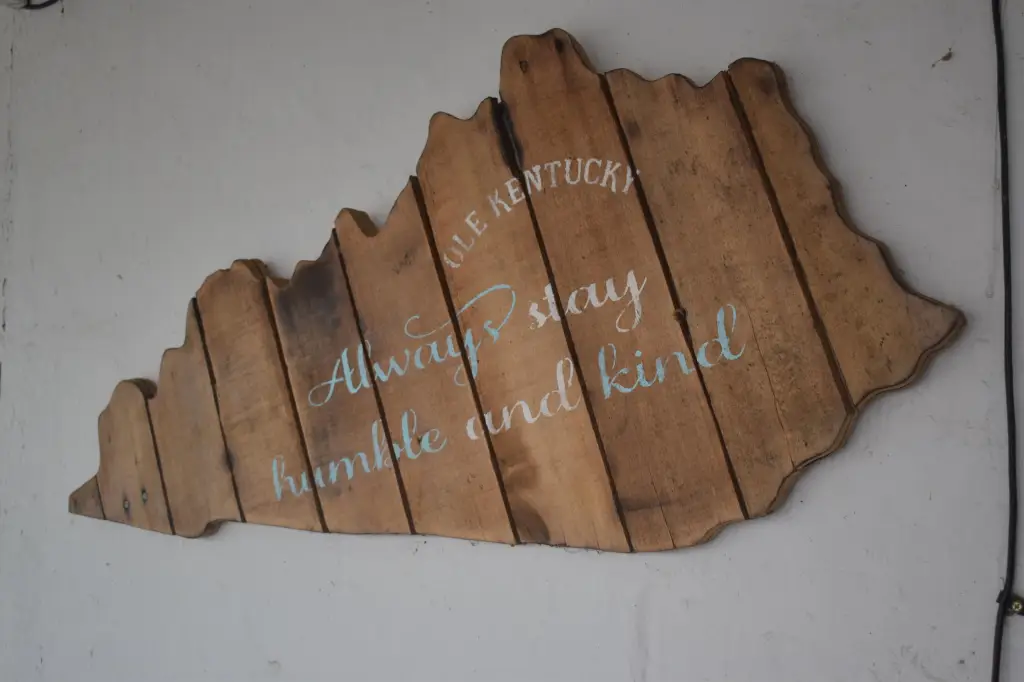 OLE KENTUCKY
Always stay
humble and kind